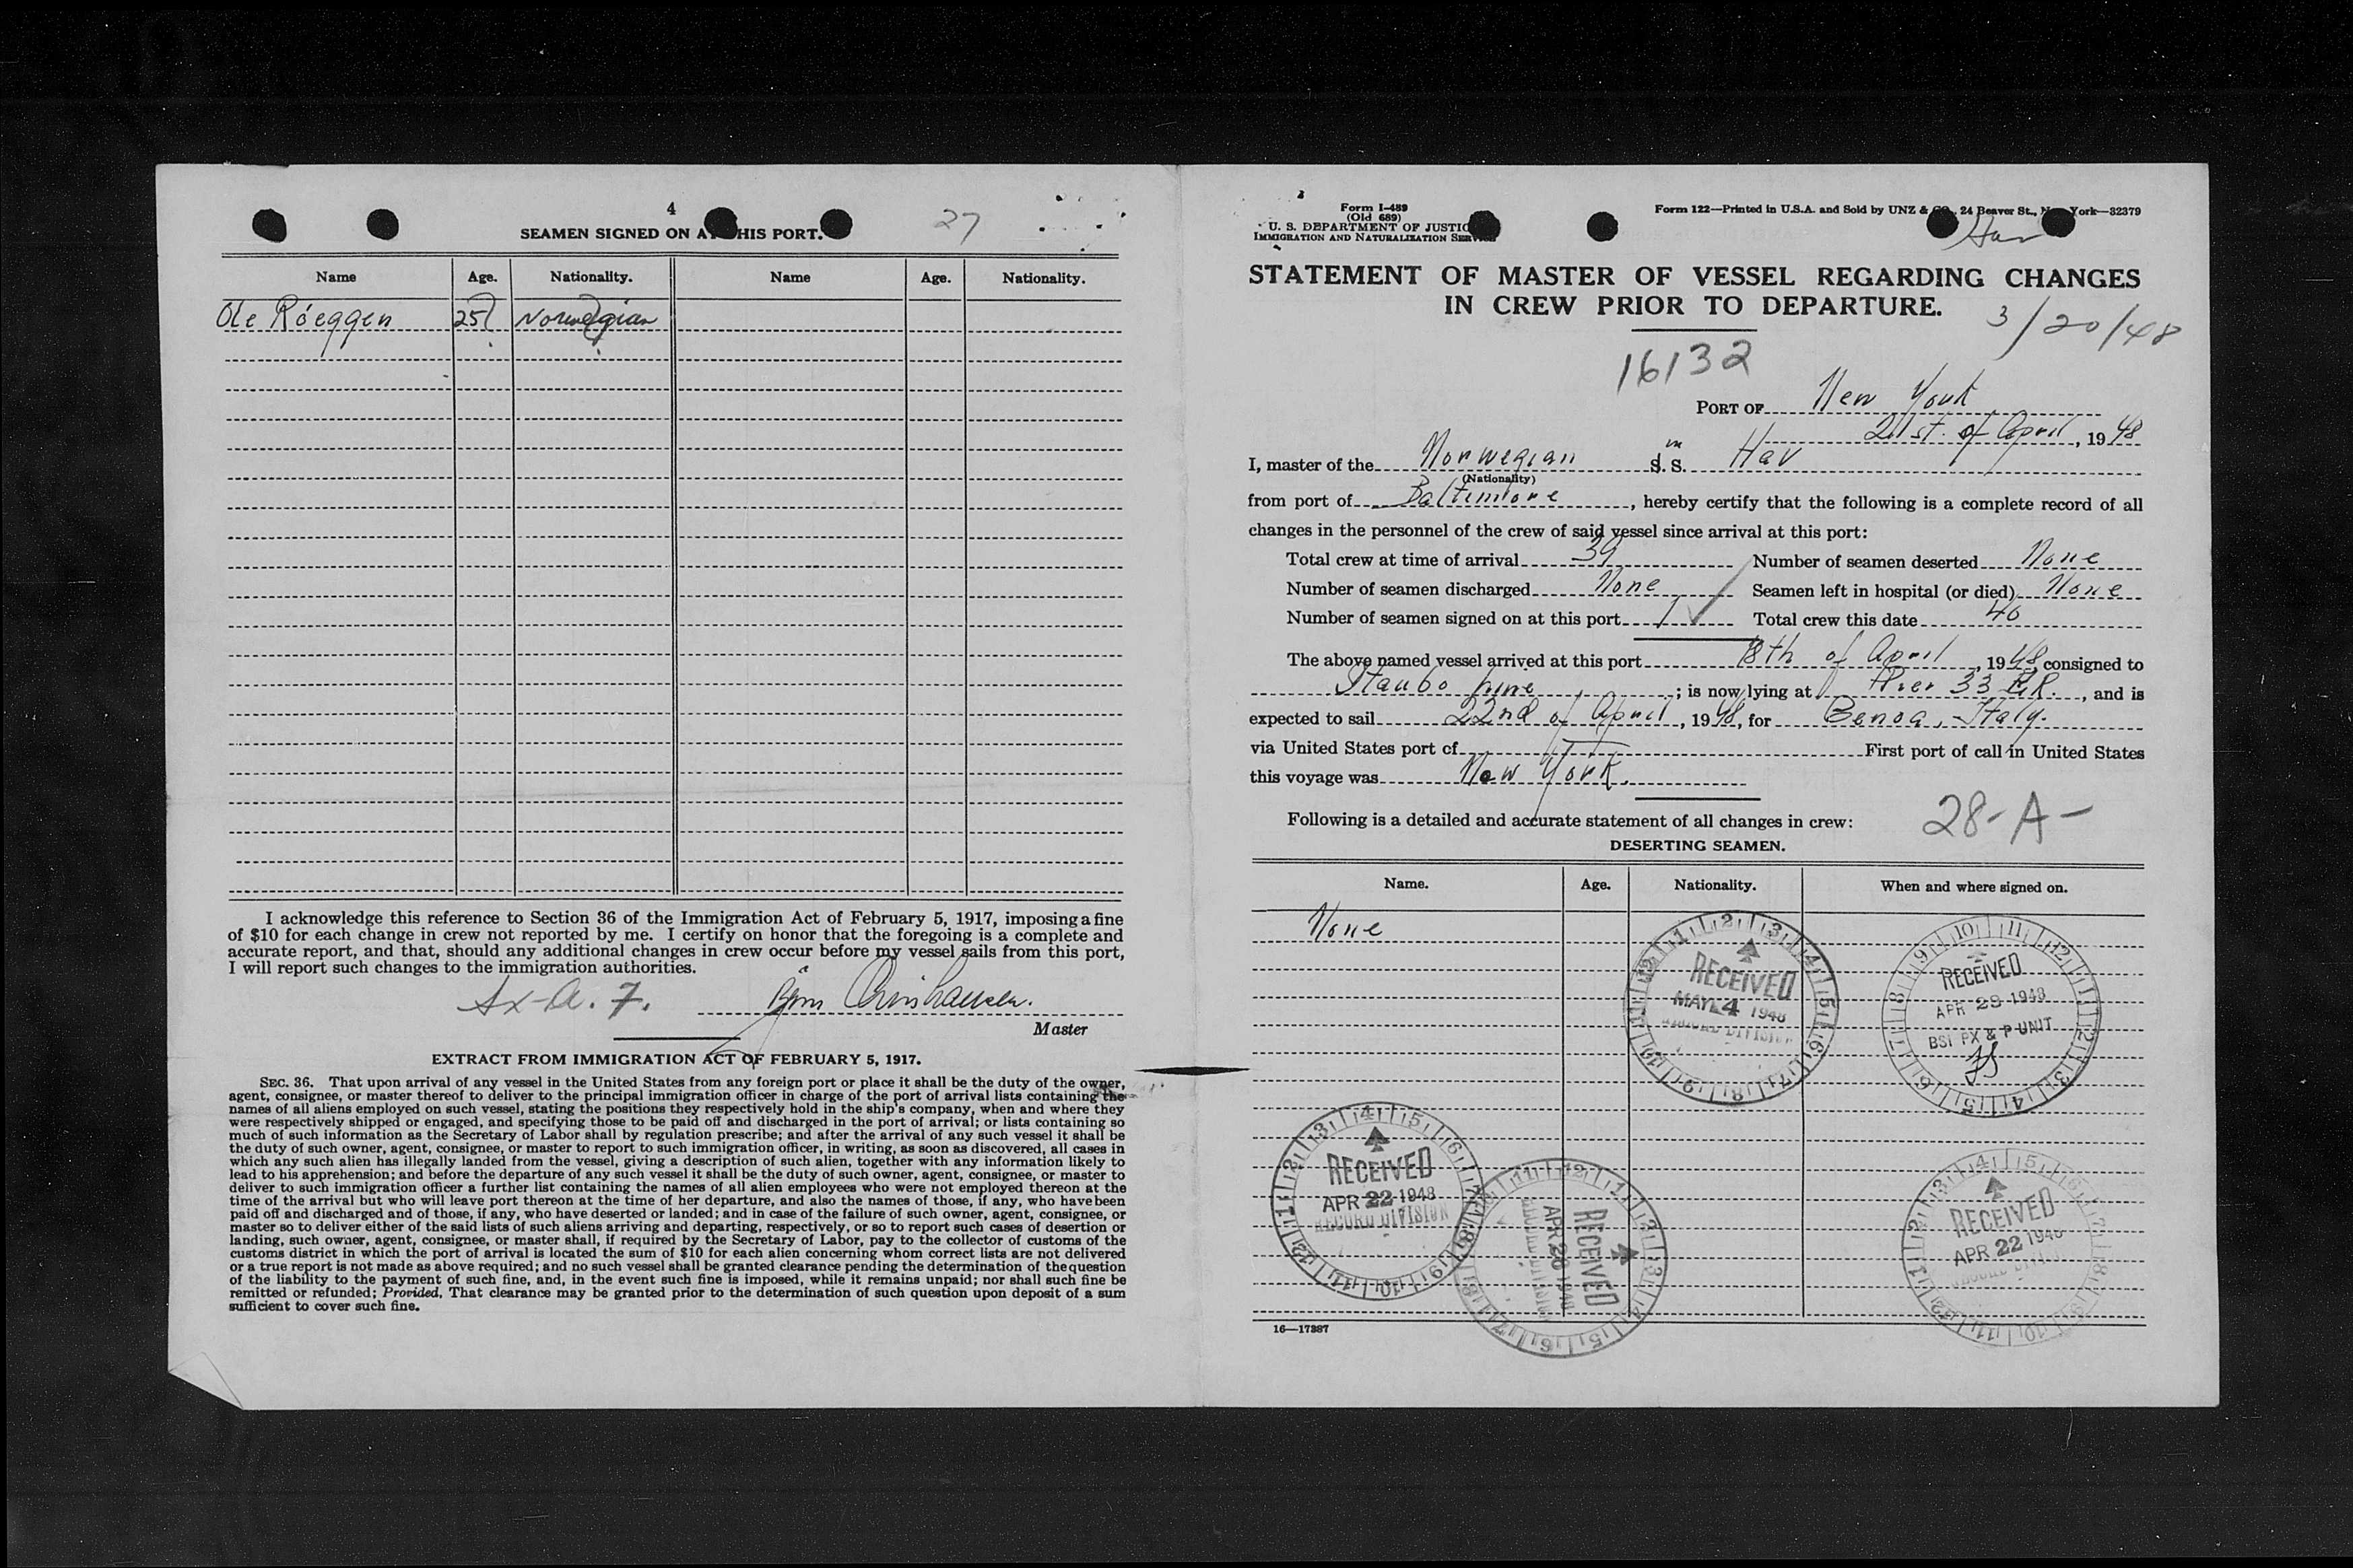 4
SEAMEN SIGNED ON AT THIS PORT.
27
Name Age. Nationality. Name Age. Nationality.
Ole Róeggen 25 Norwegian
I acknowledge this reference to Section 36 of the Immigration Act of February 5, 1917, imposing a fine
of $10 for each change in crew not reported by me. I certify on honor that the foregoing is a complete and
accurate report, and that, should any additional changes in crew occur before my vessel sails from this port,
I will report such changes to the immigration authorities.
Master
EXTRACT FROM IMMIGRATION ACT OF FEBRUARY 5, 1917.
SEC. 36. That upon arrival of any vessel in the United States from any foreign port or place it shall be the duty of the owner,
agent, consignee, or master thereof to deliver to the principal immigration officer in charge of the port of arrival lists containing the
names of all aliens employed on such vessel, stating the positions they respectively hold in the ship's company, when and where they
were respectively shipped or engaged, and specifying those to be paid off and discharged in the port of arrival; or lists containing so
much of such information as the Secretary of Labor shall by regulation prescribe; and after the arrival of any such vessel it shall be
the duty of such owner, agent, consignee, or master to report to such immigration officer, in writing, as soon as discovered, all cases in
which any such alien has illegally landed from the vessel, giving a description of such alien, together with any information likely to
lead to his apprehension; and before the departure of any such vessel it shall be the duty of such owner, agent, consignee, or master to
deliver to such immigration officer a further list containing the names of all alien employees who were not employed thereon at the
time of the arrival but who will leave port thereon at the time of her departure, and also the names of those, if any, who have been
paid off and discharged and of those, if any, who have deserted or landed; and in case of the failure of such owner, agent, consignee, or
master so to deliver either of the said lists of such aliens arriving and departing, respectively, or so to report such cases of desertion or
landing, such owner, agent, consignee, or master shall, if required by the Secretary of Labor, pay to the collector of customs of the
customs district in which the port of arrival is located the sum of $10 for each alien concerning whom correct lists are not delivered
or a true report is not made as above required; and no such vessel shall be granted clearance pending the determination of the question
of the liability to the payment of such fine, and, in the event such fine is imposed, while it remains unpaid; nor shall such fine be
remitted or refunded; Provided, That clearance may be granted prior to the determination of such question upon deposit of a sum
sufficient to cover such fine.
Form I-489
(Old 689)
U. S. DEPARTMENT OF JUSTICE
IMMIGRATION AND NATURALIZATION SERVICE
Form 122—Printed in U.S.A. and Sold by UNZ & CO., 24 Beaver St., New York—32379
STATEMENT OF MASTER OF VESSEL REGARDING CHANGES
IN CREW PRIOR TO DEPARTURE.
3/20/48
16132
PORT OF New York
21st. of April, 1948
I, master of the Norwegian S. S. Hav
(Nationality)
from port of Baltimore, hereby certify that the following is a complete record of all
changes in the personnel of the crew of said vessel since arrival at this port:
Total crew at time of arrival 39 Number of seamen deserted None
Number of seamen discharged None Seamen left in hospital (or died) None
Number of seamen signed on at this port 1 Total crew this date 40
The above named vessel arrived at this port 18th of April, 1948, consigned to
Staubo Line; is now lying at Pier 33 E.R., and is
expected to sail 22nd of April, 1948, for Genoa, Italy.
via United States port of First port of call in United States
this voyage was New York.
Following is a detailed and accurate statement of all changes in crew:
28-A-
DESERTING SEAMEN.
Name. Age. Nationality. When and where signed on.
None
RECEIVED
MAY 4 1948
RECORD DIVISION
RECEIVED
APR 28 1948
BSI PX & P UNIT
RECEIVED
APR 22 1948
RECORD DIVISION
RECEIVED
APR 26 1948
RECEIVED
APR 22 1948
16—17387